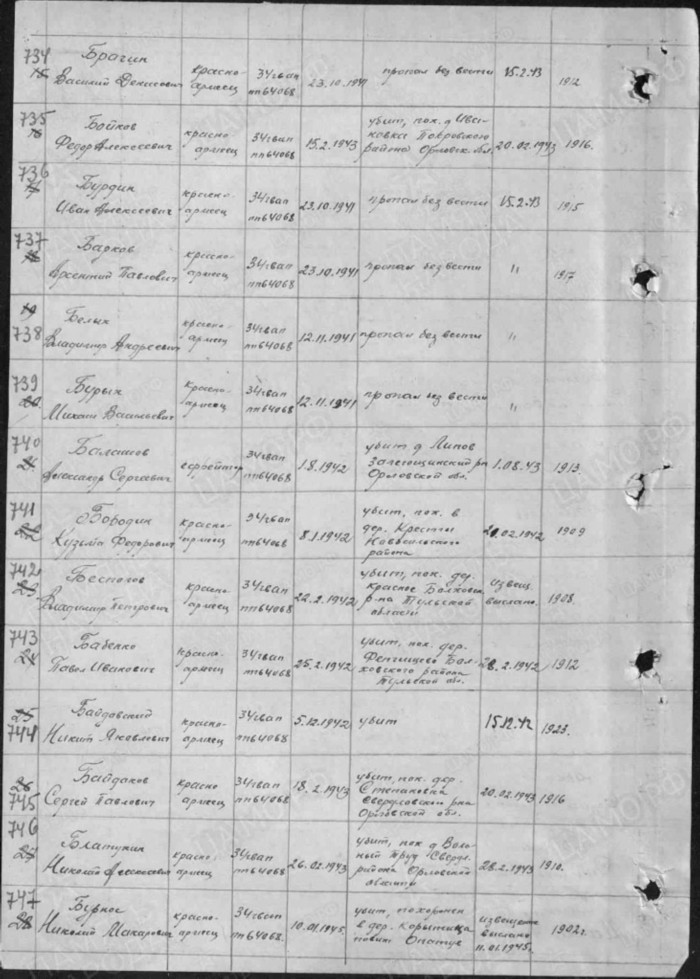 734 Брагин
Василий Денисович красно-армеец 34гвап пп64068 23.10.1941 пропал без вести 15.2.43 1912
735 Бойков
Федор Алексеевич красно армеец 34гвап пп64068 15.2.1943 убит, пох. д Ива-
новка Покровского
района Орловск. обл. 20.02.1943 1916.
736 Бурдин
Иван Алексеевич красно-армеец 34гвап пп64068 23.10.1941 пропал без вести 15.2.43 1915
737 Барков
Арсентий Павлович красно-армеец 34гвап пп64068 23.10.1941 пропал без вести " 1917
19 Белых
738 Владимир Андреевич красно-армеец 34гвап пп64068 12.11.1941 пропал без вести "
739 Бурых
20 Михаил Васильевич красно-армеец 34гвап пп64068 12.11.1941 пропал без вести "
740 Балашов
21 Александр Сергеевич ефрейтор 34гвап пп64068 1.8.1942 убит д
Залегощинский рн
Орловской обл. 1.08.43 1913
741 Бородин
22 Кузьма Федорович красно-армеец 34гвап пп64068 8.1.1942 убит, пох. в
дер.
Новосильского
района 20.02.1942 1909
742
23 Владимир Петрович красно армеец 34гвап пп64068 22.2.1942 убит, пох. дер.
Красное
р-на Тульской
области извещ.
выслано. 1908.
743 Бабенко
24 Павел Иванович красно-армеец 34гвап пп64068 25.2.1942 убит, пох. дер.
Бол-
ховского района
Тульской обл. 28.2.1942 1912
25 Байдовский
744 Никит Яковлевич красно-армеец 34гвап пп64068 5.12.1942 убит 15.12.42 1923.
26 Байдаков
745 Сергей Павлович красно армеец 34гвап пп64068 18.2.1943 убит, пох. дер.
Степановка
Свердловский рна
Орловской обл. 20.02.1943 1916
746
27 Николай красно-армеец 34гвап пп64068 26.02.1943 убит, пох д Воль-
ный Труд Свердл.
района Орловской
области 28.2.1943 1910.
747
28 Николай Макарович красно-армеец 34гвап пп64068. 10.01.1945. убит, похоронен
в дер. Корытница
повит Опатув извещение
выслано
11.01.1945. 1902г.